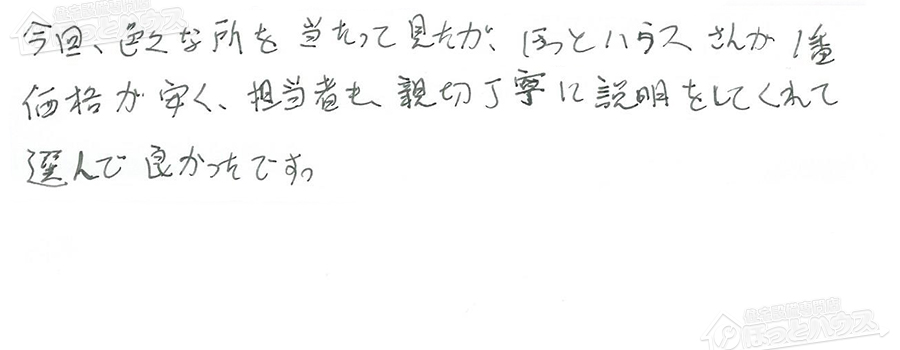 今回、色々な所を当たって見たが、ほっとハウスさんが1番
価格が安く、担当者も親切丁寧に説明をしてくれて
選んで良かったです。
住宅設備専門店
ほっとハウス